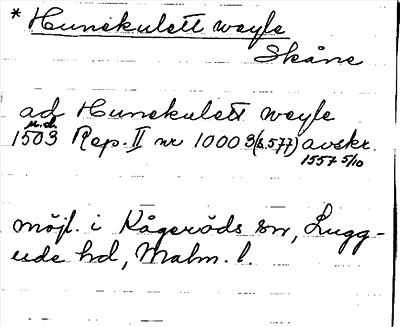 * Hunekulett weyle
Skåne
ad Hunekulett weyle
u.d.
1503 Rep. II nr 10003 (s.577) avskr.
1557 5/10
möjl. i Kågeröds sn, Lugg-
ude hd, Malm. l.